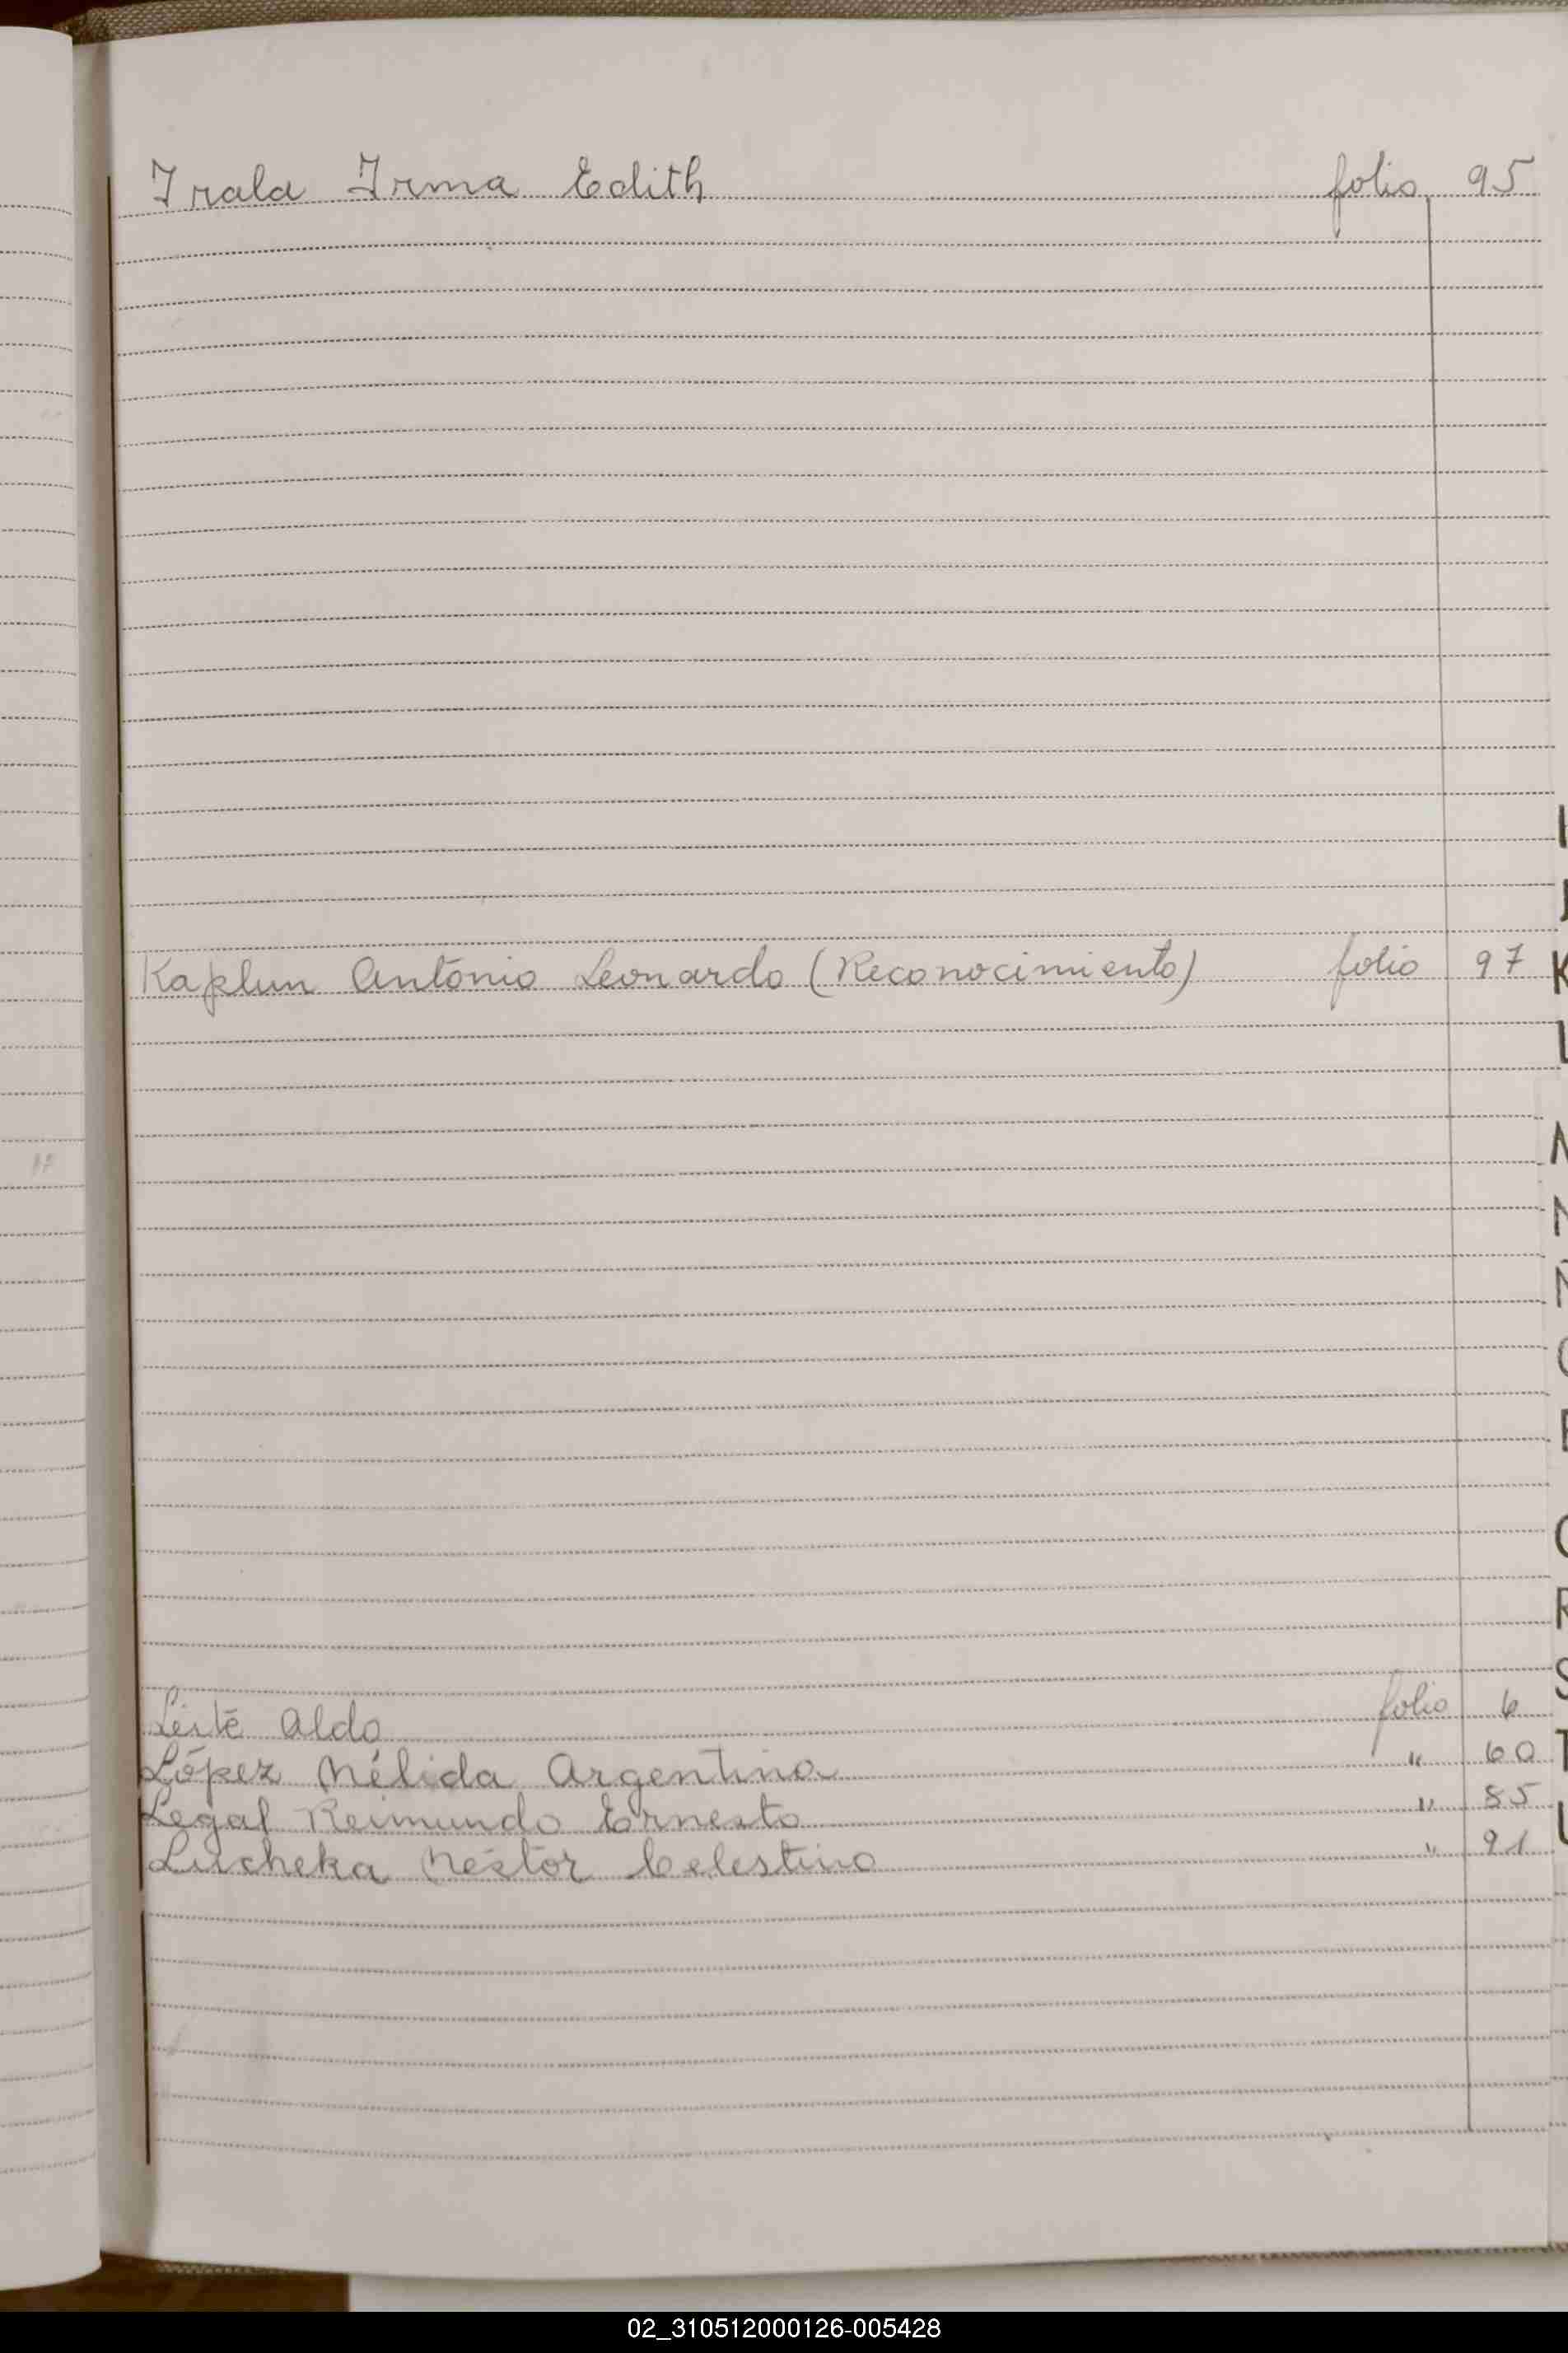 Irala Irma Edith folio 95
Kaplun Antonio Leonardo (Reconocimiento) folio 97
Leite Aldo folio 6
López Nélida Argentina " 60
Legal Reimundo Ernesto " 85
Lucheka Néstor Celestino " 91
H
J
K
L
M
N
Ñ
O
P
Q
R
S
T
U
02_310512000126-005428